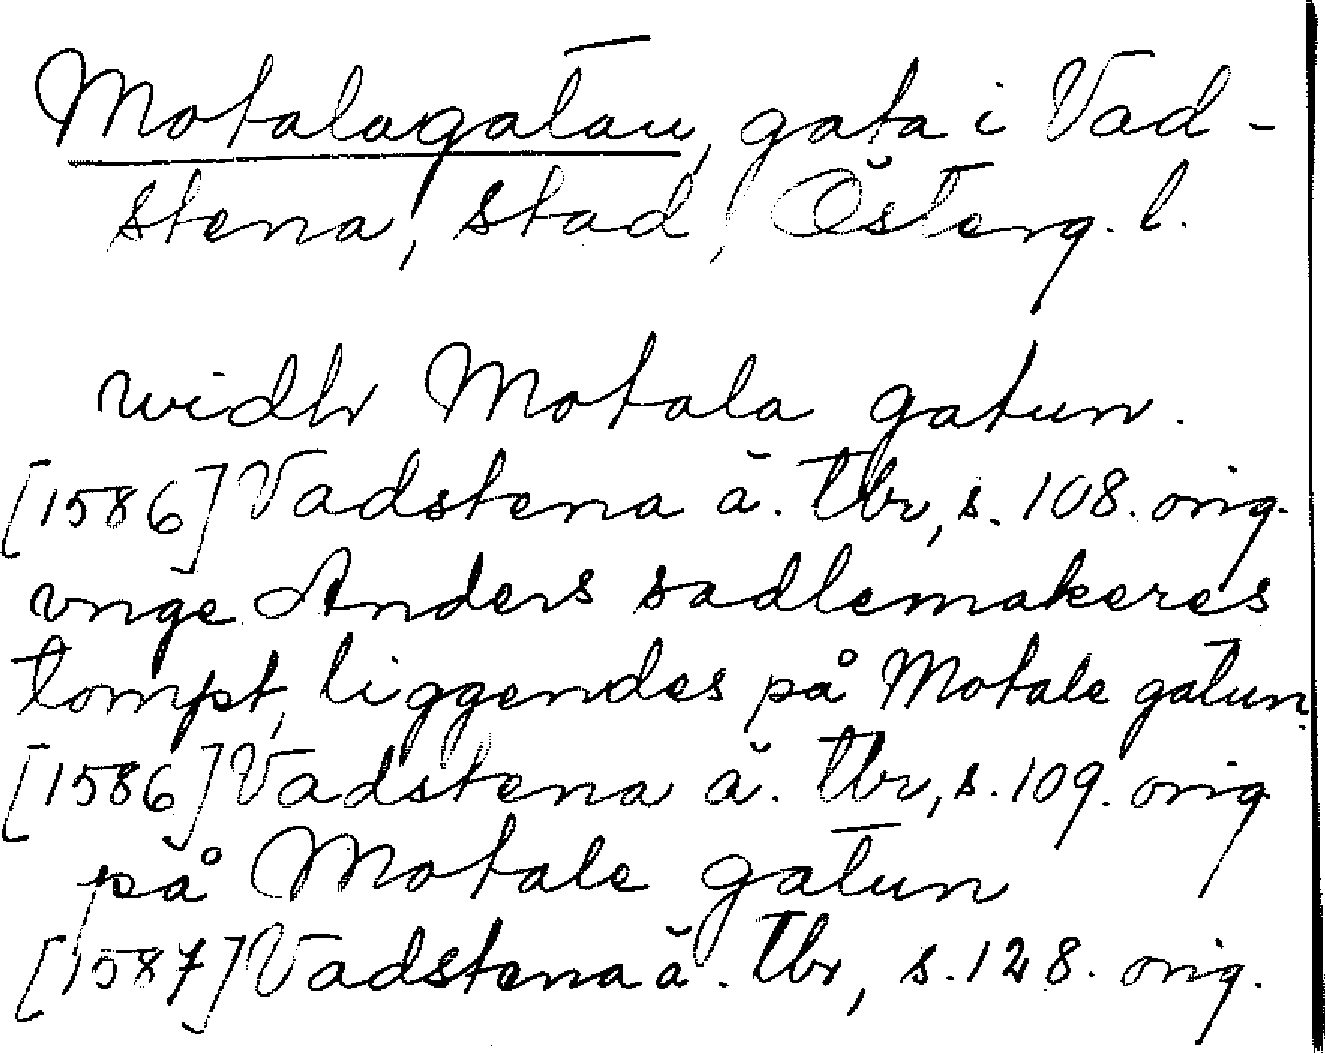 Motalagatan, gata i Vad-
stena, stad, Österg. l.
widh Motala gatun.
[1586] Vadstena ä. tbr, s. 108. orig.
vnge Anders sadlemakeres
tompt, liggendes på Motale gatun.
[1586] Vadstena ä. tbr, s. 109. orig
på Motale gatun
[1587] Vadstena ä. tbr, s. 128. orig.